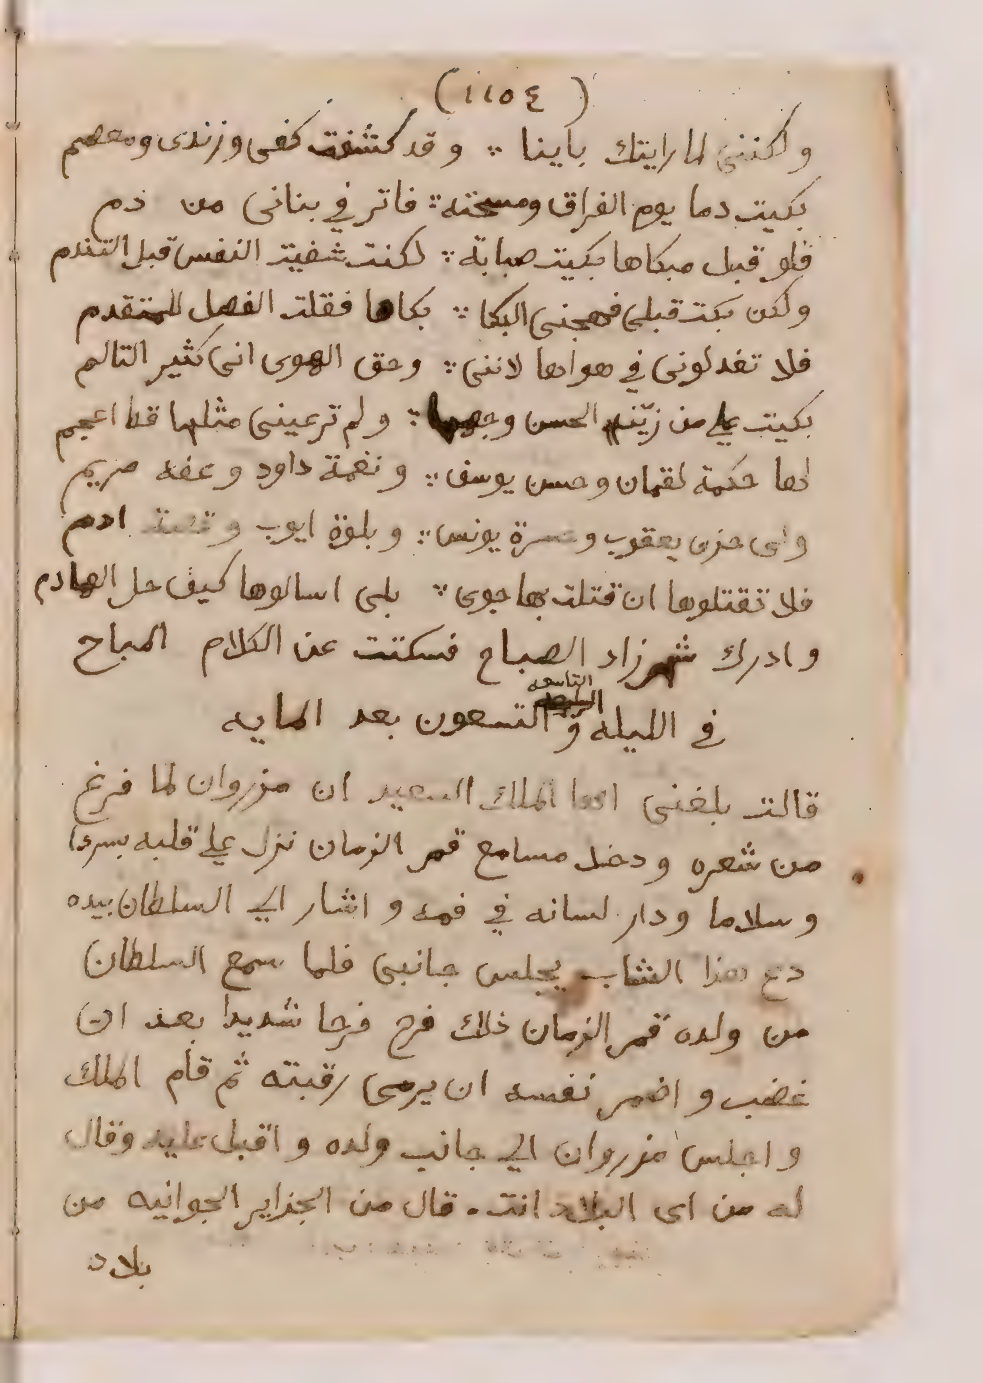 (١١٥٤)
ولكننى لما رايتك باينا ∴ وقد كشفت كفى وزندى ومعصم
بكيت دما يوم الفراق ومسحته ∴ فاثر في بنانى من دم
فلو قبل مبكاها بكيت صبابة ∴ لكنت شفيت النفس قبل التندم
ولكن بكت قبلى فهيجنى البكا ∴ بكاها فقلت الفضل للمتقدم
فلا تعدلونى في هواها لاننى ∴ وحق الهوى انى كثير التالم
بكيت على من زيّن الحسن وجهها ∴ ولم ترعينى مثلها قط اعجم
لها حكمة لقمان وحسن يوسف ∴ ونغمة داود وعفه مريم
ولى حزن يعقوب وحسرة يونس ∴ وبلوة ايوب وقصة ادم
فلا تقتلوها ان قتلت بها جوى ∴ بلى اسالوها كيف حل لها دم
وادرك شهرزاد الصباح فسكتت عن الكلام المباح
في الليله التاسعه والتسعون بعد المايه
قالت بلغنى ايها الملك السعيد ان مزروان لما فرغ
من شعره ودخل مسامع قمر الزمان نزل على قلبه بردا
وسلاما ودار لسانه في فمه واشار الى السلطان بيده
دع هذا الشاب يجلس جانبى فلما سمع السلطان
من ولده قمر الزمان ذلك فرح فرحا شديدا بعد ان
غضب واضمر نفسه ان يرمى رقبته ثم قام الملك
واجلس مزروان الى جانب ولده واقبل عليه وقال
له من اى البلاد انت. قال من الجزاير الجوانيه من
بلاد